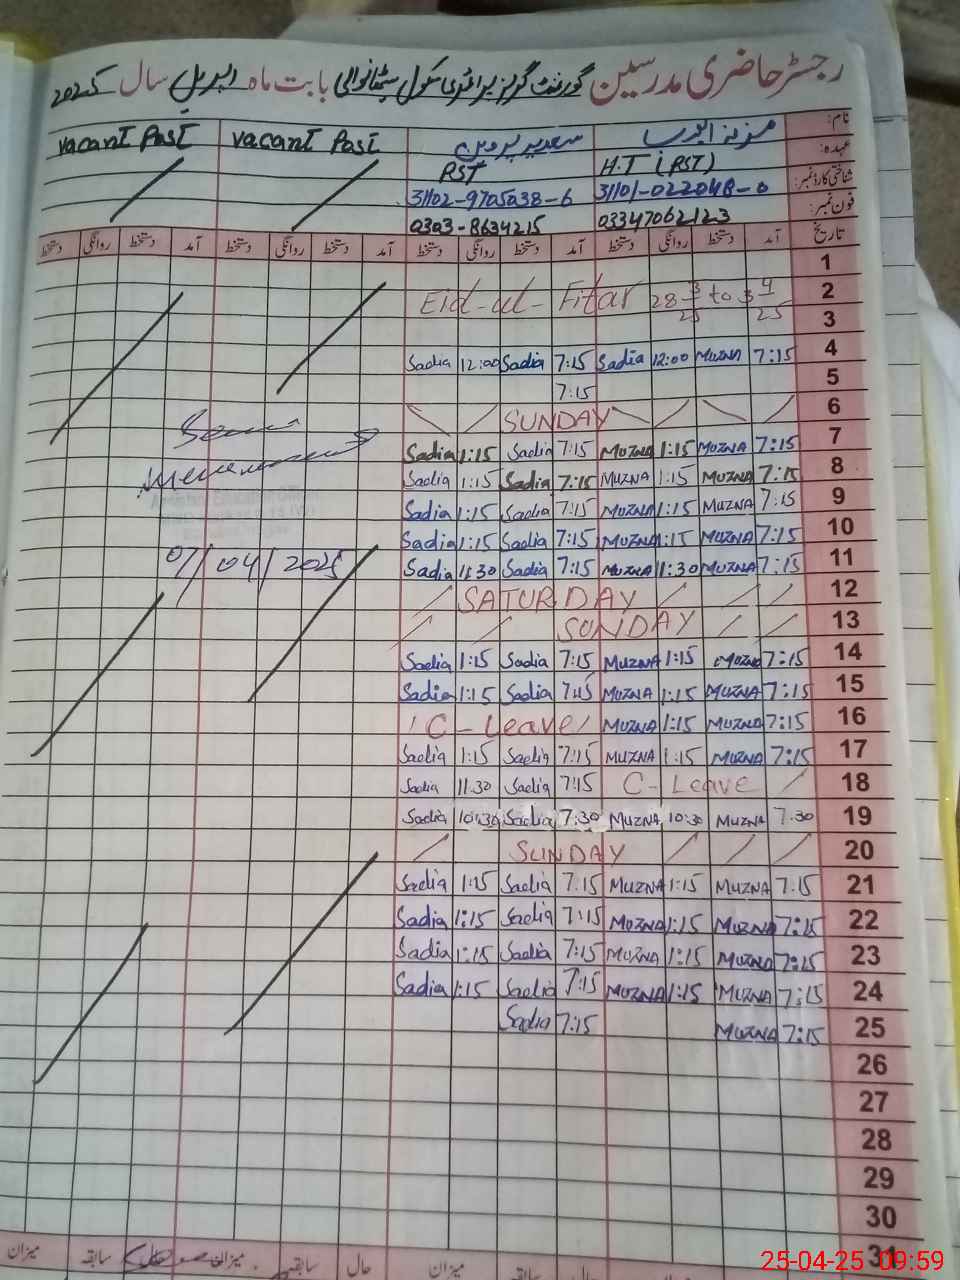 رجسٹر حاضری مدرسین گورنمنٹ گرلز پرائمری سکول بابت ماہ اپریل سال 2025
نام:
Vacant Post Vacant Post سعدیہ پروین
عہدہ: H.T (PST) PST
شناختی کارڈ نمبر: 31101-022048-0 31102-9705038-6
فون نمبر: 03347062123 0303-8634215
تاریخ آمد دستخط روانگی دستخط آمد دستخط روانگی دستخط آمد دستخط روانگی دستخط آمد دستخط روانگی دستخط
1
Eid-ul-Fitar 28 3/25 to 3 4/25 2
3
Sadia 12:00 Sadia 7:15 Sadia 12:00 MUZNA 7:15 4
7:15 5
SUNDAY 6
Sadia 1:15 Sadia 7:15 MUZNA 1:15 MUZNA 7:15 7
Sadia 1:15 Sadia 7:15 MUZNA 1:15 MUZNA 7:15 8
Sadia 1:15 Sadia 7:15 MUZNA 1:15 MUZNA 7:15 9
Sadia 1:15 Sadia 7:15 MUZNA 1:15 MUZNA 7:15 10
07/04/2025 Sadia 11:30 Sadia 7:15 MUZNA 11:30 MUZNA 7:15 11
SATURDAY 12
SUNDAY 13
Sadia 1:15 Sadia 7:15 MUZNA 1:15 MUZNA 7:15 14
Sadia 1:15 Sadia 7:15 MUZNA 1:15 MUZNA 7:15 15
C-Leave MUZNA 1:15 MUZNA 7:15 16
Sadia 1:15 Sadia 7:15 MUZNA 1:15 MUZNA 7:15 17
Sadia 11.30 Sadia 7:15 C-Leave 18
Sadia 10:30 Sadia 7:30 MUZNA 10:30 MUZNA 7.30 19
SUNDAY 20
Sadia 1:15 Sadia 7:15 MUZNA 1:15 MUZNA 7.15 21
Sadia 1:15 Sadia 7:15 MUZNA 1:15 MUZNA 7:15 22
Sadia 1:15 Sadia 7:15 MUZNA 1:15 MUZNA 7:15 23
Sadia 1:15 Sadia 7:15 MUZNA 1:15 MUZNA 7:15 24
Sadia 7:15 MUZNA 7:15 25
26
27
28
29
30
31
میزان سابقہ حال میزان سابقہ حال میزان
25-04-25 09:59